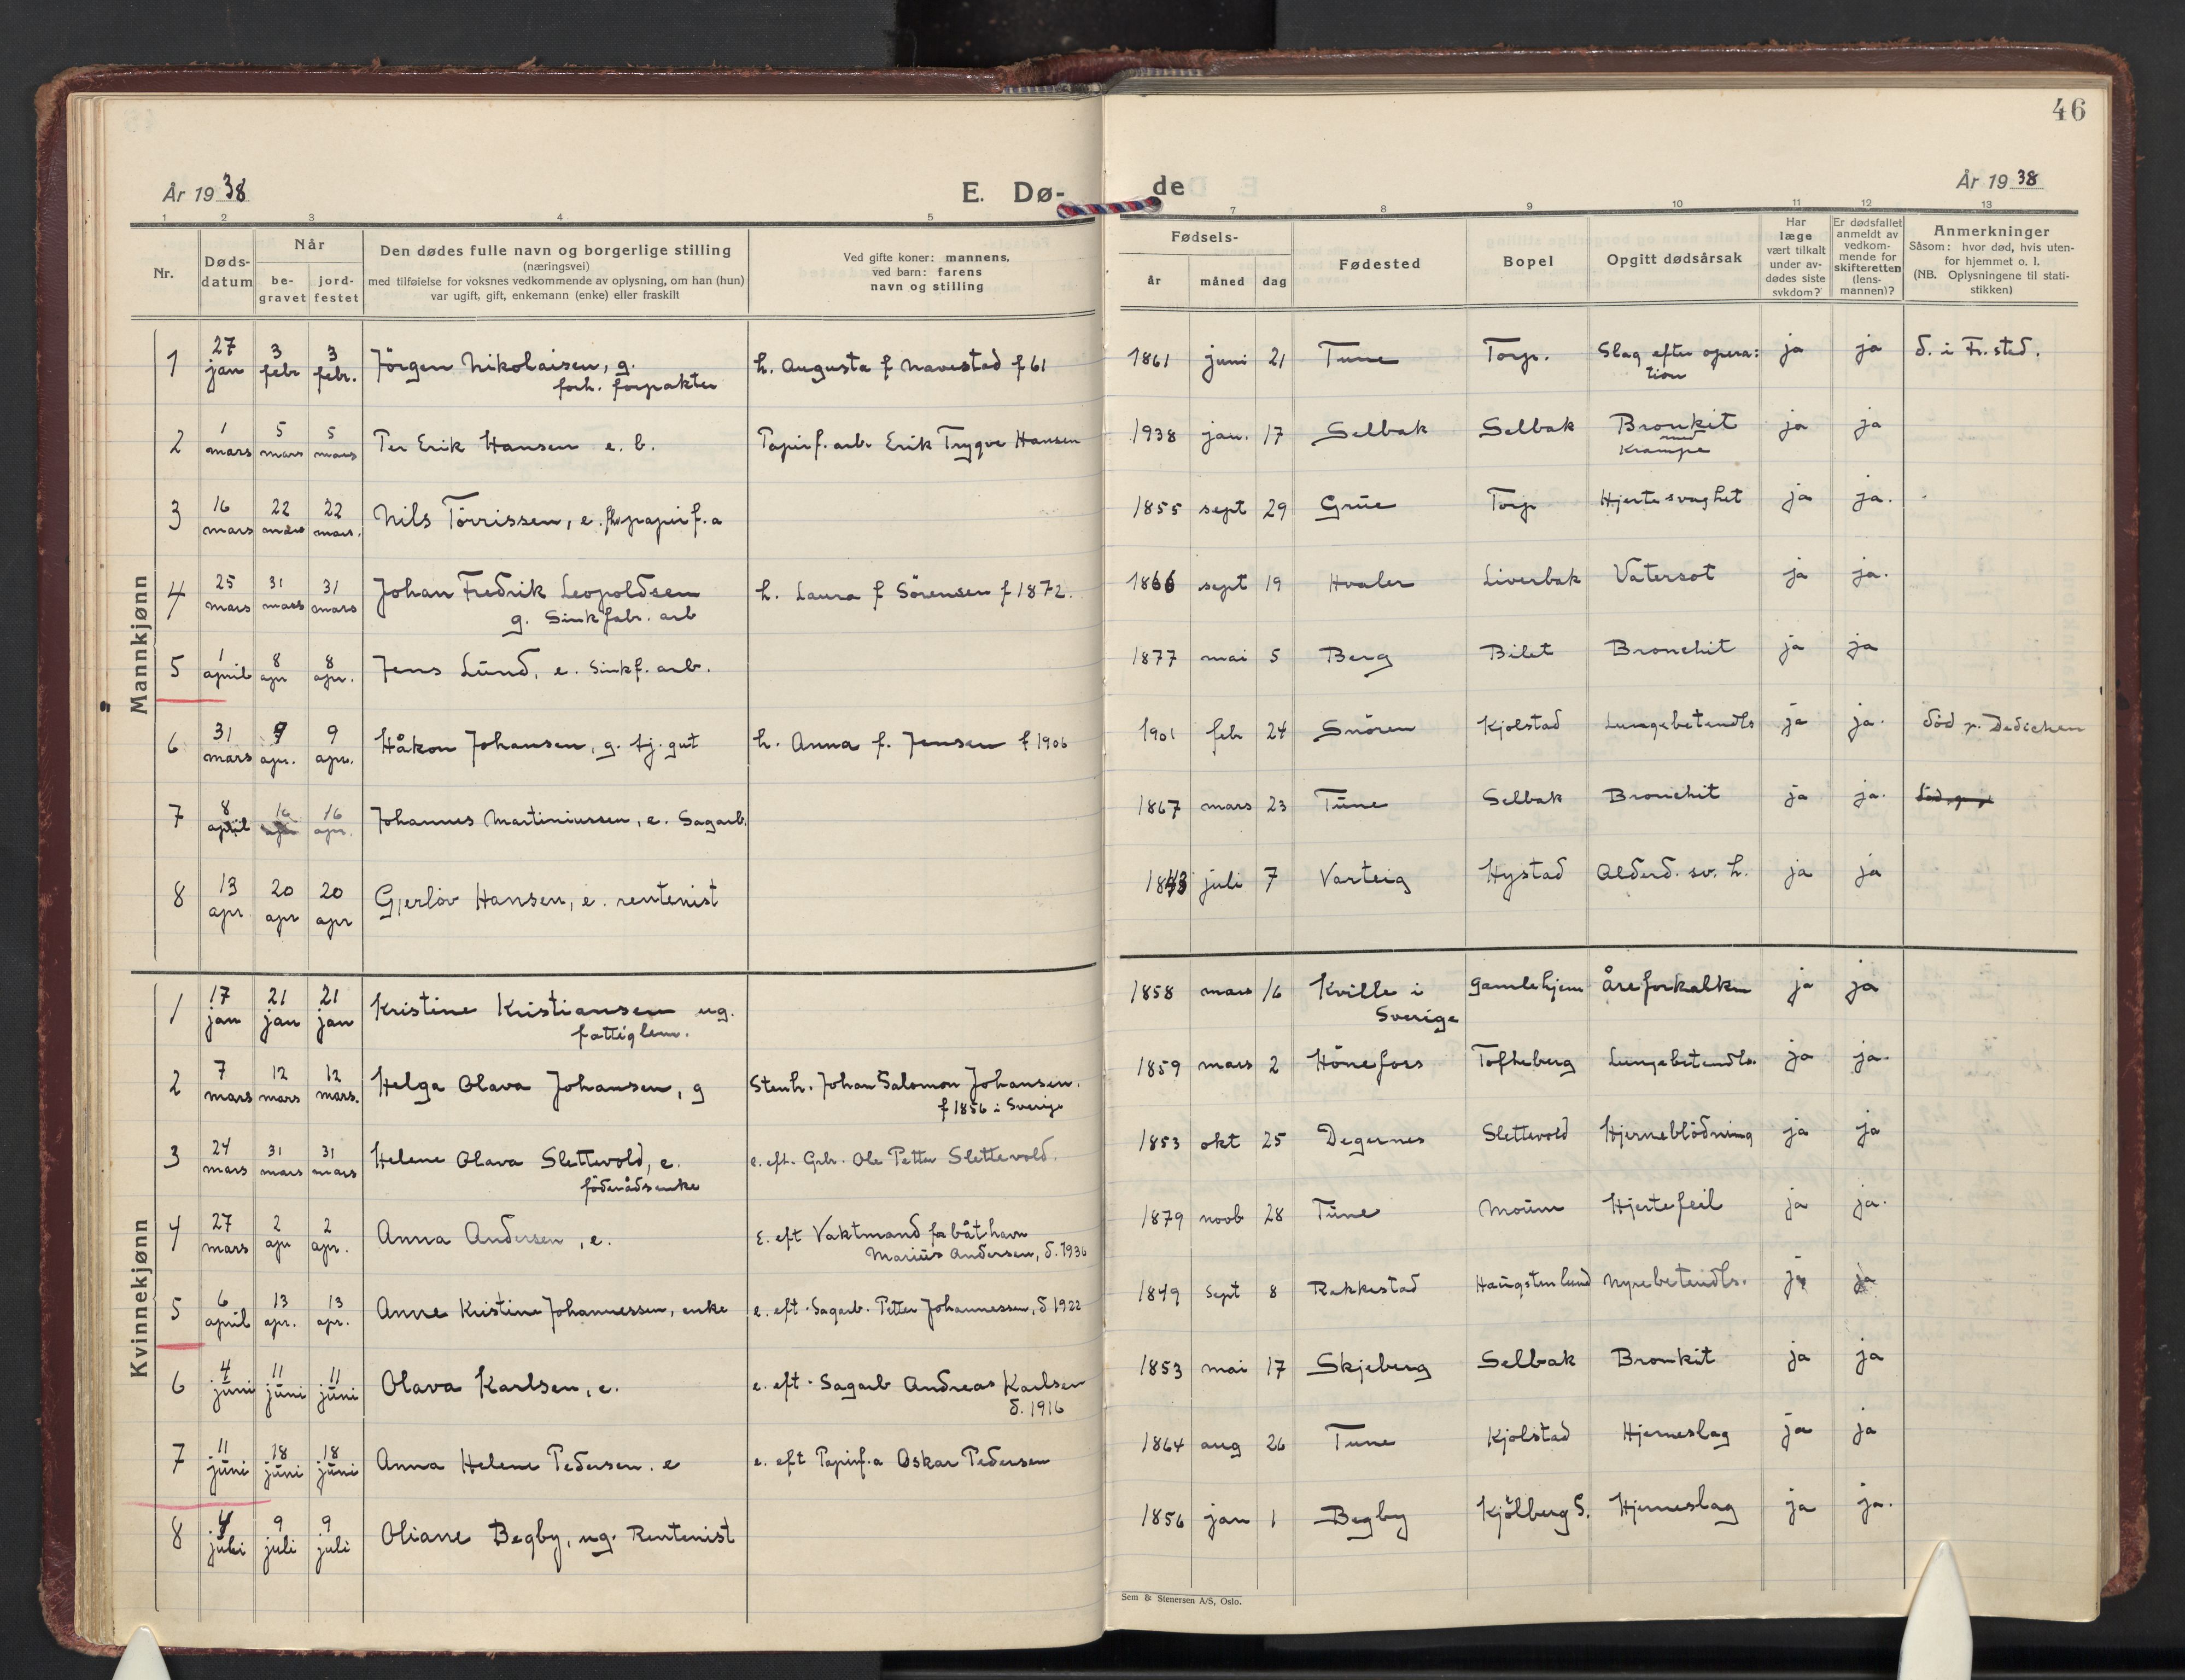 46
År 1938
E. Dø-
de
År 1938
1 2 3 4 5 7 8 9 10 11 12 13
Nr.
Døds-
datum
Når
be-
gravet
jord-
festet
Den dødes fulle navn og borgerlige stilling
(næringsvei)
med tilføielse for voksnes vedkommende av oplysning, om han (hun)
var ugift, gift, enkemann (enke) eller fraskilt
Ved gifte koner: mannens,
ved barn: farens
navn og stilling
Fødsels-
år måned dag
Fødested
Bopel
Opgitt dødsårsak
Har
læge
vært tilkalt
under av-
dødes siste
sykdom?
Er dødsfallet
anmeldt av
vedkom-
mende for
skifteretten
(lens-
mannen)?
Anmerkninger
Såsom: hvor død, hvis uten-
for hjemmet o. l.
(NB. Oplysningene til stati-
stikken)
Mannkjønn
1 27 jan 3 febr 3 febr. Jörgen Nikolaisen, g. forh. forpakter h. Augusta f Navestad f 61 1861 juni 21 Tune Torp. Slag efter opera: tion ja ja d. i Fr.sted.
2 1 mars 5 mars 5 mars Per Erik Hansen e. b. Papirf. arb Erik Trygve Hansen 1938 jan. 17 Selbak Selbak Bronkit med Krampe ja ja
3 16 mars 22 mars 22 mars. Nils Törrissen, e. fhv papirf. a 1855 sept 29 Grue Torp Hjertesvaghet ja ja.
4 25 mars 31 mars 31 mars Johan Fredrik Leopoldsen g. Sinkfabr. arb h. Laura f Sörensen f 1872. 1866 sept 19 Hvaler Liverbak Vatersot ja ja.
5 1 april 8 apr 8 apr. Jens Lund, e. Sinkf. arb. 1877 mai 5 Berg Bilet Bronchit ja ja
6 31 mars 9 apr. 9 apr. Håkon Johansen, g. tj. gut h. Anna f. Jensen f 1906 1901 feb 24 Snören Kjolstad Lungebetendls ja ja. död p. Dedichen
7 8 april 16 apr 16 apr. Johannes Martiniussen, e. Sagarb. 1867 mars 23 Tune Selbak Bronchit ja ja.
8 13 apr 20 apr 20 apr Gjerlöv Hansen, e. rentenist 1843 juli 7 Varteig Hystad Alderd. sv. h. ja ja
Kvinnekjønn
1 17 jan 21 jan 21 jan Kristine Kristiansen ug. fattiglem. 1858 mars 16 Kville i Sverige Gamlehjem Åreforkalkn ja ja
2 7 mars 12 mars 12 mars. Helga Olava Johansen, g Stenh. Johan Salomon Johansen. f 1856 i Sverige 1859 mars 2 Hönefoss Tofteberg Lungebetendls. ja ja.
3 24 mars 31 mars 31 mars Helene Olava Slettevold, e. föderådsenke e. eft. Grbr. Ole Petter Slettevold. 1853 okt 25 Degernes Slettevold Hjerneblödning ja ja
4 27 mars 2 apr 2 apr. Anna Andersen, e. E. eft Vaktmand for båthavn Marius Andersen, d. 1936 1879 novb 28 Tune Moum Hjertefeil ja ja.
5 6 april 13 apr. 13 apr. Anne Kristine Johannessen, enke e. eft. Sagarb. Petter Johannessen, d 1922 1849 Sept 8 Rakkestad Haugstenlund Nyrebetendls. ja ja
6 4 juni 11 juni 11 juni Olava Karlsen, e. e. eft. Sagarb Andreas Karlsen d. 1916 1853 mai 17 Skjeberg Selbak Bronkit ja ja
7 11 juni 18 juni 18 juni Anna Helene Pedersen. e e. eft Papirf. a Oskar Pedersen 1864 aug 26 Tune Kjolstad Hjerneslag ja ja
8 4 juli 9 juli 9 juli Oliane Begby, ug. Rentenist 1856 jan 1 Begby Kjölberg S. Hjerneslag ja ja.
Sem & Stenersen A/S, Oslo.